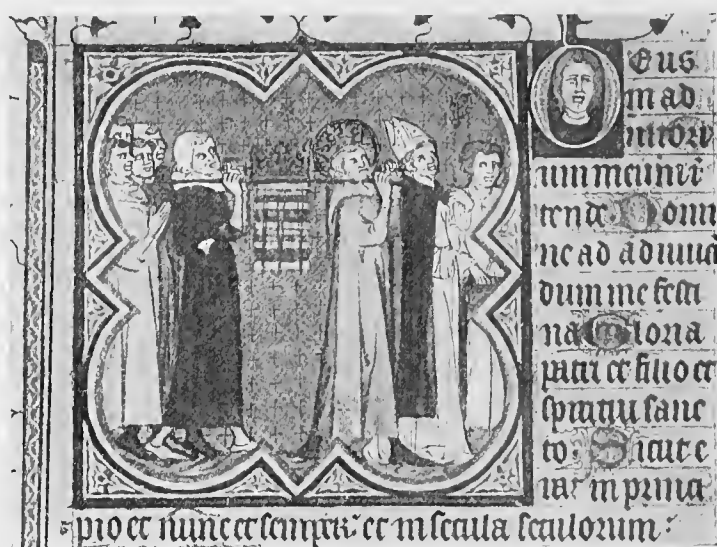 Deus
in ad
iutori
um meum in
tende Domi
ne ad adiuua
dum me festi
na Gloria
patri et filio et
spiritui sanc
to Sicut e
rat in princi
pio et nunc et semper et in secula seculorum